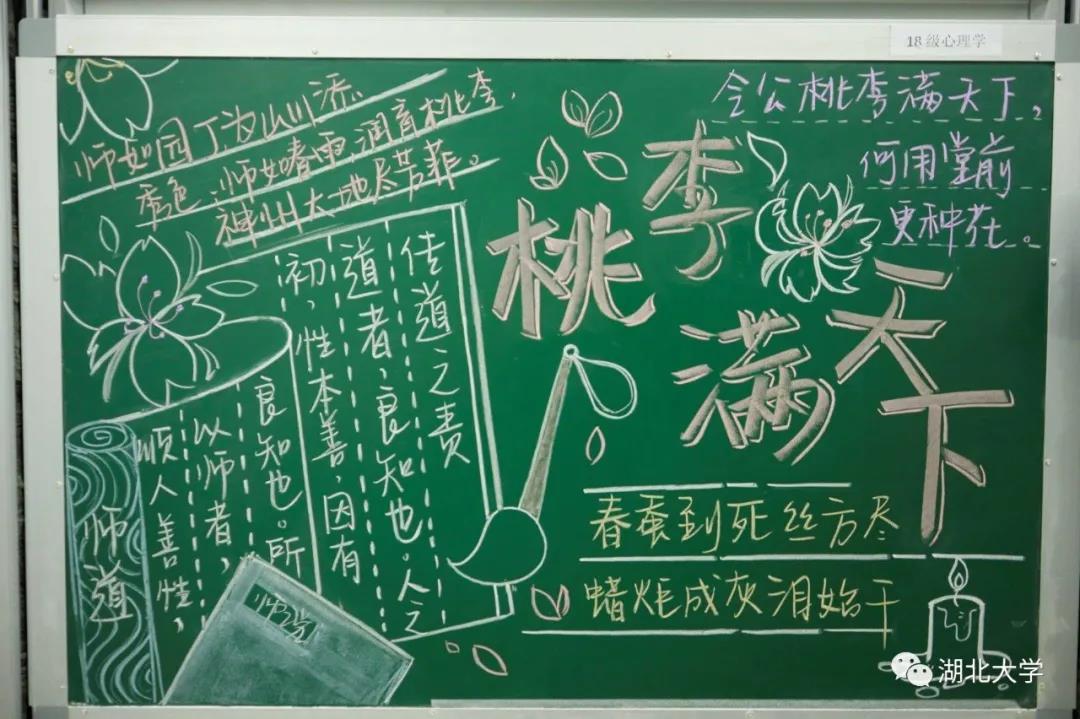 18级心理学
师如园丁,为山川添
秀色;师如春雨,润育桃李,
神州大地尽芳菲。
令公桃李满天下,
何用堂前
更种花。
桃李
满天下
传道之责
道者,良知也。人之
初,性本善,因有
良知也。所
以师者,
顺人善性,
师道
师说
春蚕到死丝方尽
蜡炬成灰泪始干
湖北大学